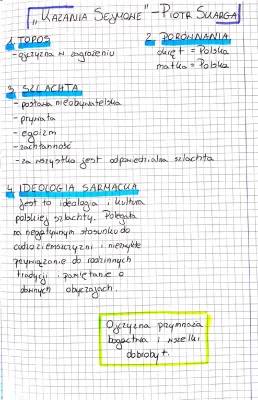 „Kazania Sejmowe" - Piotr Skarga
1. TOPOS
- ojczyzna w zagrożeniu
2. PORÓWNANIA
okręt = Polska
matka = Polska
3. SZLACHTA
- postawa nieobywatelska
- prywata
- egoizm
- zachłanność
- za wszystko jest odpowiedzialna szlachta
4. IDEOLOGIA SARMACKA
Jest to ideologia i kultura
polskiej szlachty. Polegała
na negatywnym stosunku do
cudzoziemszczyzny i niezwykłe
przywiązanie do rodzinnych
tradycji i pamiętanie o
dawnych obyczajach.
Ojczyzna przymnaża
bogactwa i wszelki
dobrobyt.